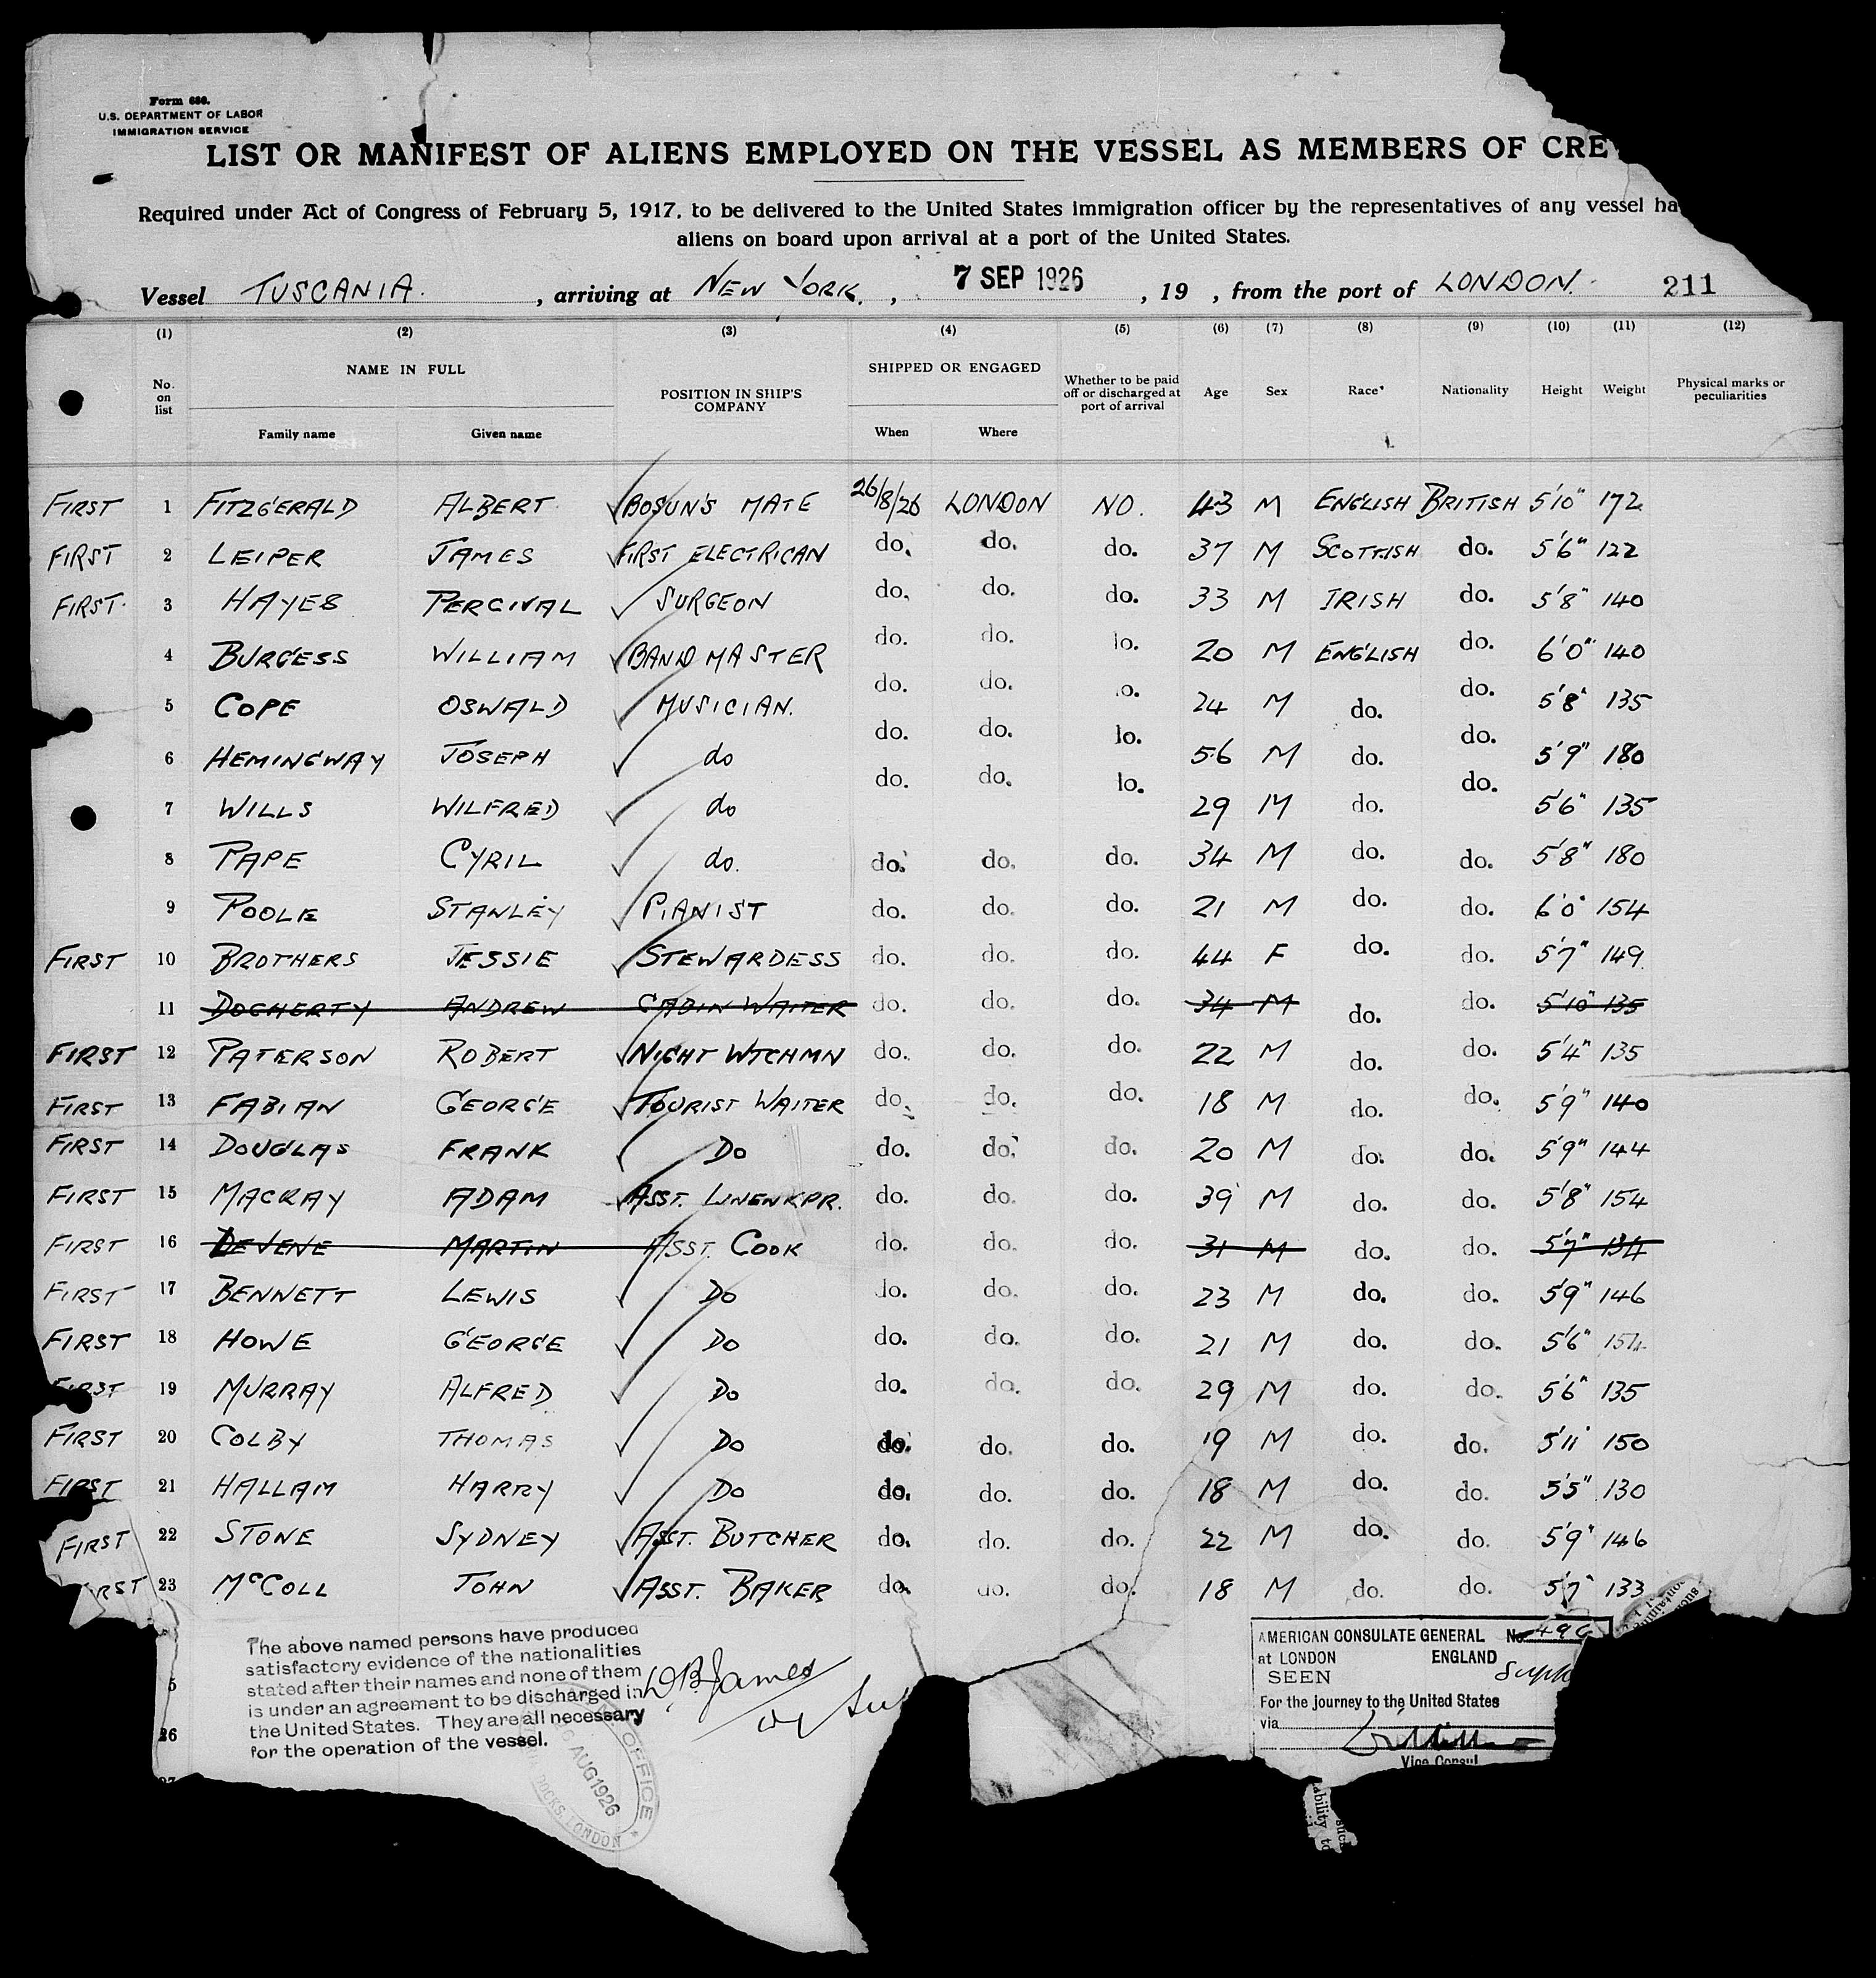 Form 680.
U.S. DEPARTMENT OF LABOR
IMMIGRATION SERVICE
LIST OR MANIFEST OF ALIENS EMPLOYED ON THE VESSEL AS MEMBERS OF CRE
Required under Act of Congress of February 5, 1917, to be delivered to the United States immigration officer by the representatives of any vessel ha
aliens on board upon arrival at a port of the United States.
Vessel TUSCANIA. , arriving at NEW YORK. , 7 SEP 1926 , 19 , from the port of LONDON. 211
(1) (2) (3) (4) (5) (6) (7) (8) (9) (10) (11) (12)
No. on list NAME IN FULL Family name Given name POSITION IN SHIP'S COMPANY SHIPPED OR ENGAGED When Where Whether to be paid off or discharged at port of arrival Age Sex Race* Nationality Height Weight Physical marks or peculiarities
FIRST 1 FITZGERALD ALBERT BOSUN'S MATE 26/8/26 LONDON NO. 43 M ENGLISH BRITISH 5'10" 172
FIRST 2 LEIPER JAMES FIRST ELECTRICAN do. do. do. 37 M SCOTTISH do. 5'6" 122
FIRST. 3 HAYES PERCIVAL SURGEON do. do. do. 33 M IRISH do. 5'8" 140
4 BURGESS WILLIAM BAND MASTER do. do. lo. 20 M ENGLISH do. 6'0" 140
5 COPE OSWALD MUSICIAN. do. do. o. 24 M do. do. 5'8" 135
6 HEMINGWAY JOSEPH do do. do. lo. 56 M do. do. 5'9" 180
7 WILLS WILFRED do do. do. lo. 29 M do. do. 5'6" 135
8 PAPE CYRIL do. do. do. do. 34 M do. do. 5'8" 180
9 POOLE STANLEY PIANIST do. do. do. 21 M do. do. 6'0" 154
FIRST 10 BROTHERS JESSIE STEWARDESS do. do. do. 44 F do. do. 5'7" 149
11 DOCHERTY ANDREW CABIN WAITER do. do. do. 34 M do. do. 5'10" 135
FIRST 12 PATERSON ROBERT NIGHT WTCHMN do. do. do. 22 M do. do. 5'4" 135
FIRST 13 FABIAN GEORGE TOURIST WAITER do. do. do. 18 M do. do. 5'9" 140
FIRST 14 DOUGLAS FRANK DO do. do. do. 20 M do. do. 5'9" 144
FIRST 15 MACKAY ADAM ASST. LINENKPR. do. do. do. 39 M do. do. 5'8" 154
FIRST 16 DEVENE MARTIN ASST. COOK do. do. do. 31 M do. do. 5'7" 134
FIRST 17 BENNETT LEWIS DO do. do. do. 23 M do. do. 5'9" 146
FIRST 18 HOWE GEORGE DO do. do. do. 21 M do. do. 5'6" 154
FIRST 19 MURRAY ALFRED DO do. do. do. 29 M do. do. 5'6" 135
FIRST 20 COLBY THOMAS DO do. do. do. 19 M do. do. 5'11" 150
FIRST 21 HALLAM HARRY DO do. do. do. 18 M do. do. 5'5" 130
FIRST 22 STONE SYDNEY ASST. BUTCHER do. do. do. 22 M do. do. 5'9" 146
RST 23 McCOLL JOHN ASST. BAKER do. do. do. 18 M do. do. 5'7" 133
The above named persons have produced
satisfactory evidence of the nationalities
stated after their names and none of them
is under an agreement to be discharged in
the United States. They are all necessary
for the operation of the vessel.
5
26
27
James
OFFICE
AUG 1926
DOCKS, LONDON
AMERICAN CONSULATE GENERAL No.
at LONDON ENGLAND
SEEN
For the journey to the United States
via
Vice Consul
ability to
such